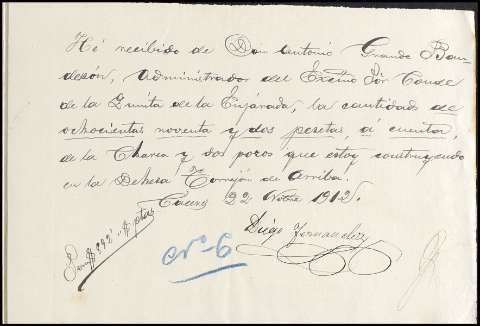 Hé recibido de Don Antonio Grande Bau-
desón, Administrador del Excmo Sór Conde
de la Quinta de la Enjarada, la cantidad de
ochocientas noventa y dos pesetas, á cuenta
de la Charca y dos pozos que estoy construyendo
en la Dehesa Torrejón de Arriba.
Caceres 22 Novbre 1912.
Diego Fernandez
Son 892 " ptas
Nº 6